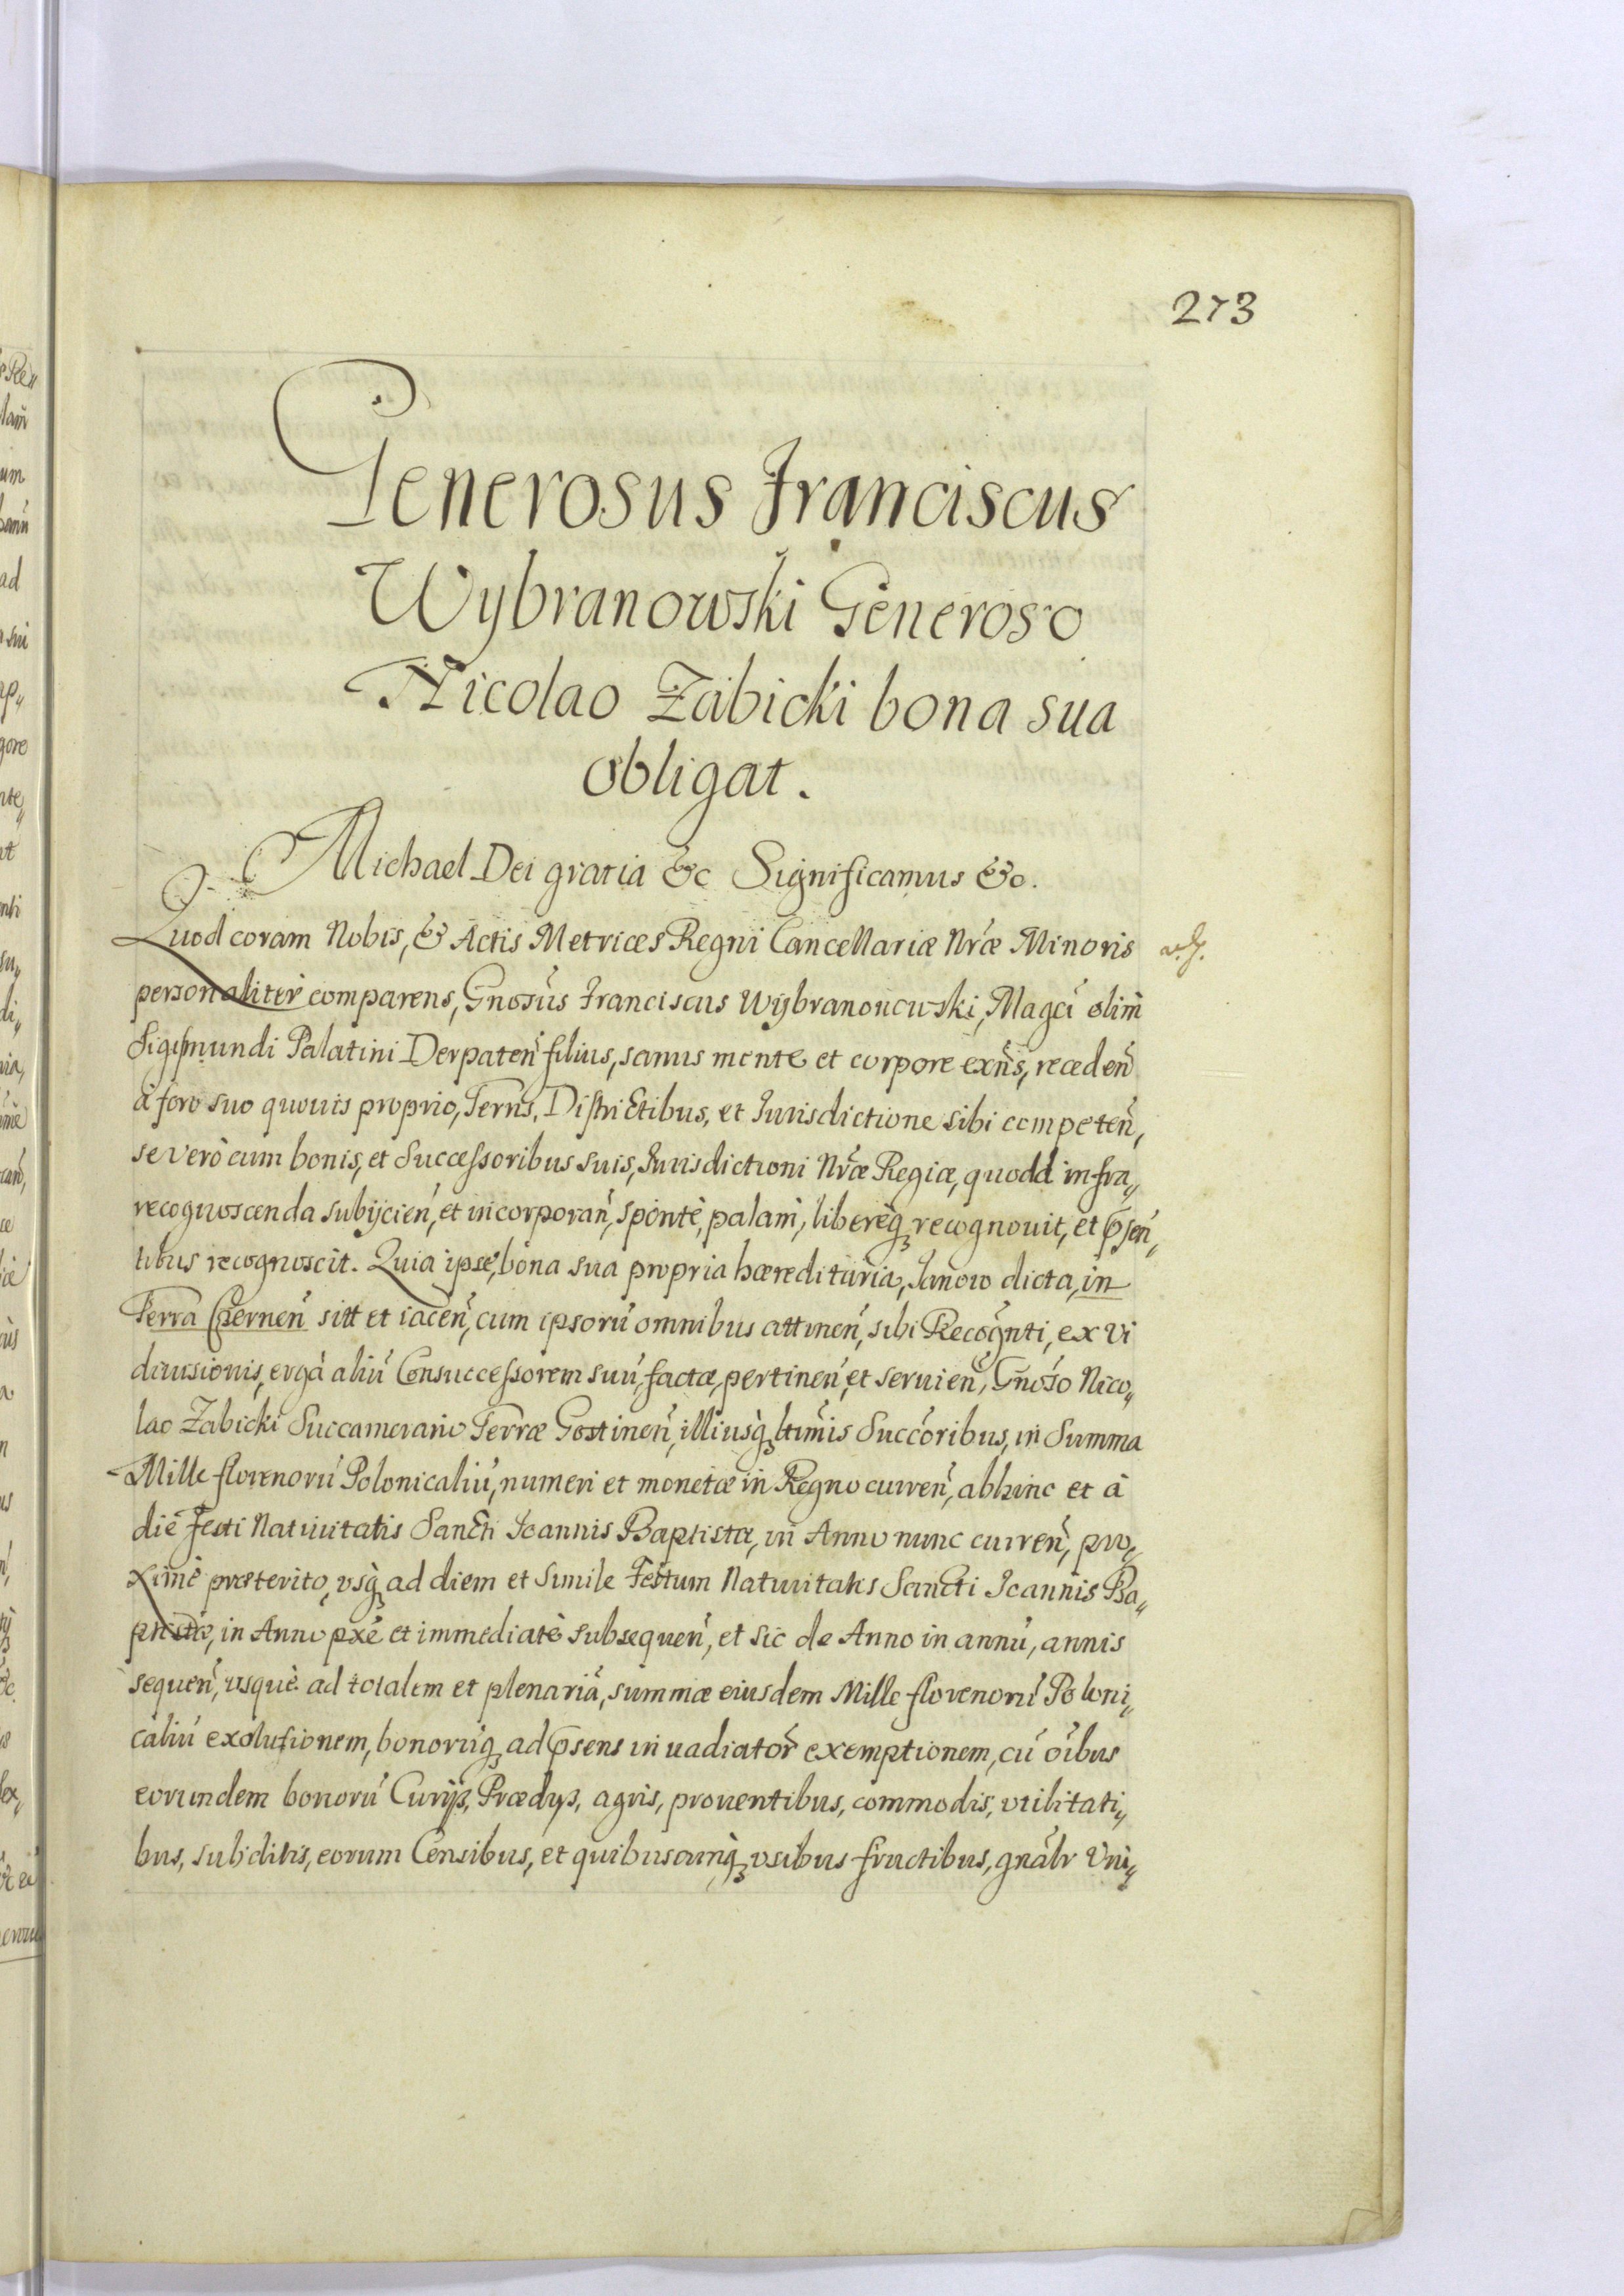 273
Generosus Franciscus
Wybranowski Generoso
Nicolao Zabicki bona sua
obligat.
Michael Dei gratia &c Significamus &c.
Quod coram Nobis, & Actis Metrices Regni Cancellariæ Nr̃æ Minoris
personaliter comparens, Gnosus Franciscus Wybranowski, Magci olim
Sigismundi Palatini Derpateñ filius, sanus mente et corpore exñs, recedeñ
à foro suo quovis proprio, Terris, Districtibus, et Iurisdictione sibi competeñ,
se verò cum bonis, et Successoribus suis, Iurisdictioni Nr̃æ Regiæ, quodd infra„
recognoscenda subijcieñ, et incorporañ, sponte, palam, libereq; recognouit, et p̃sen„
tibus recognoscit. Quia ipse, bona sua propria hæreditaria, Janow dicta, in
Terra Czerneñ sitt et iaceñ, cum ipsorũ omnibus attineñ, sibi Recognti, ex vi
diuisionis, ergà aliũ Consuccessorem suũ, factæ, pertineñ, et seruieñ, Gnoso Nico„
lao Zabicki Succamerario Terræ Gostineñ, illiusq; ltimis Succoribus, in Summa
Mille florenorũ Polonicaliũ, numeri et monetæ in Regno curreñ, abhinc et à
die Festi Natiuitatis Sancti Ioannis Baptistæ, in Anno nunc curreñ, pro„
xime præterito, vsq; ad diem et simile Festum Natiuitatis Sancti Ioannis Ba„
ptistæ, in Anno pxe et immediatè subsequeñ, et sic de Anno in annũ, annis
sequeñ, vsque ad totalem et plenariã, summæ eiusdem Mille florenorũ Poloni„
caliũ exolutionem, bonorũq; ad p̃sens inuadiator̃ exemptionem, cũ oĩbus
eorundem bonorũ Curijs, Prædijs, agris, prouentibus, commodis, vtilitati„
bus, subditis, eorum Censibus, et quibuscunq; vsibus fructibus, gnãlr Vni„